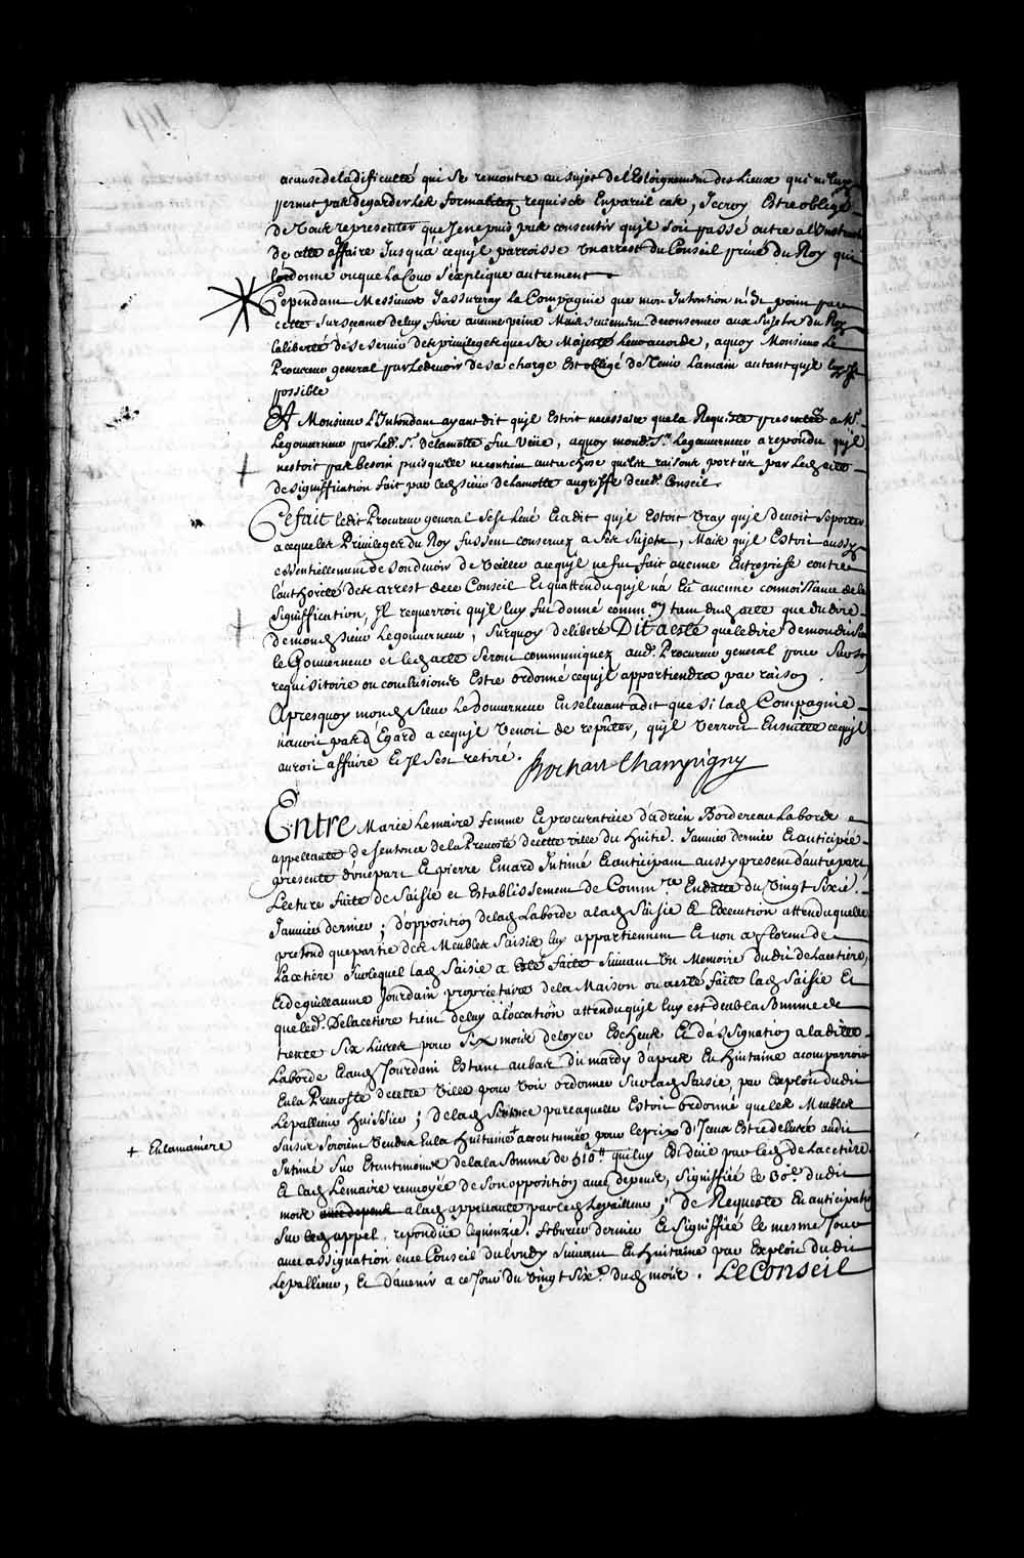 acause de la dificulté qui se rencontre au sujet de l'Esloignement des Lieux qui ne luy
permet pas de garder les formalitez requises En pareil cas, Je croy Estre obligé
de Vous representer que Je ne puis pas consentir qu'jl soit passé outre a l'Instruct
de cette affaire Jusqu'a ce qu'jl parroisse Un arrest du Conseil privé du Roy qui
l'ordonne ou que La Cour s'explique autrement
Cependant Messieurs J'assureray La Compagnie que mon Intention n'est point par
cette surseance de luy faire aucune peine Mais seulement de conserver aux Sujets du Roy
la liberté de se servir des privileges que Sa Majesté Leur accorde, a quoy Monsieur Le
Procureur general par Le devoir de sa charge Est obligé de Tenir La main autant qu'jl luy est
possible
Et Monsieur L'Intendant ayant dit qu'jl Estoit necessaire que la Requeste presentée a Mr.
Le gouverneur par Led. Sr. de lamotte fut veüe, a quoy mond. Sr. Le gouverneur a repondu qu'jl
n'estoit pas besoin puis qu'elle ne contient autre chose que les raisons portées par Led. acte
de signiffication fait par led. Sieur de Lamotte au griffe de ced. Conseil
Ce fait le dit Procureur general s'est Levé Et a dit qu'jl Estoit Vray qu'jl devoit s'opposer
a ce que les Privileges du Roy fussent conservez a Ses Sujets, Mais qu'jl Estoit aussy
essentiellement de son devoir de Veiller a ce qu'jl ne fut fait aucune Entreprise contre
l'authorité des arrest de ce Conseil Et qu'attendu qu'jl n'a Eü aucune connoissance de la
signiffication, Jl requerroit qu'jl luy fut donné comm.on tant dud. acte que du dire
de mond. sieur Le gouverneur, Surquoy deliberé Dit a esté que le dire de mondit Sieur
le Gouverneur et led. acte Seront communiquez aud. Procureur general pour Sur son
requisitoire ou conclusions Estre ordonné ce qu'jl appartiendra par raison.
Apresquoy mond. Sieur Le Gouverneur En se levant a dit que si lad. Compagnie
n'avoit pas d'Egard a ce qu'jl Venoit de reputer, qu'jl verroit Ensuitte ce qu'jl
auroit affaire Et Jl s'est retiré.
Bochart Champigny
Entre Marie Lemaire femme Et procuratrice d'adrien Bordereau Laborde
appellante de sentence de la Prevosté de cette ville du huitie. Janvier dernier Et anticipée
presente d'une part Et pierre Emard Intimé Et anticipant aussy present d'autre part
Lecture faite de Saisie et Establissement de Comm.re En datte du Vingt Sixie.
Janvier dernier; d'opposition de lad. Laborde a lad. Saisie Et Execution attendu qu'elle
pretend que partie des Meubles Saisis luy appartiennent Et non a florent de
Lacetiere sur lequel lad. Saisie a Esté faite Suivant Un Memoire du dit de Lacetiere,
Et de guillaume Jourdain propriétaire de la Maison ou a esté faite lad. Saisie Et
que led. De lacetiere tient de luy a loccation attendu qu'jl luy est deub la Somme de
trente six Livres pour Six mois de loyer Escheus Et d'assignation a la ditte
Laborde Et aud. Jourdain Estant au bas du mardy d'apres En huitaine a comparroir
En la Prevosté de cette Ville pour Voir ordonner Sur lad. Saisie, par Exploit du dit
Lepallieur huissier; de lad. Sentence par laquelle Estoit ordonné que les Meubles
saisis seroient Vendus En la huitaine + accoutumée pour le prix d'Iceux Estre delivré audit
Intimé Sur Et tantmoins de la la Somme de 510tt. qui luy Est due par led. de Lacetiere
Et lad. Lemaire renvoyée de Son opposition avec depens, signiffiée le 30e. dudit
mois avec depens a lad. appellante par led. Lepallieur; de Requeste En anticipatn
Sur led. appel, repondüe le quinzie. febvrier dernier Et Signiffiée le mesme Jour
avec assignation en ce Conseil du lundy Suivant En huitaine par Exploit du dit
Lepallieur, Et d'avenir a ce Jour du Vingt Six.e dud. mois. Le Conseil
+ En la maniere